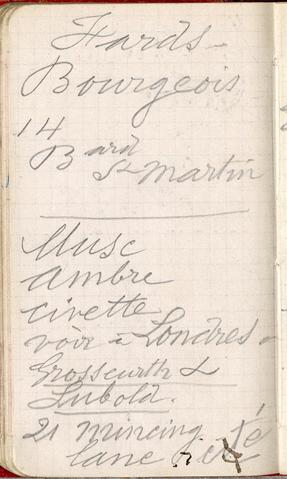 Fards
Bourgeois
14
Bard
St Martin
Musc
Ambre
civette
voir à Londres
Grosscurth &
Lubold.
21 mincing
lane